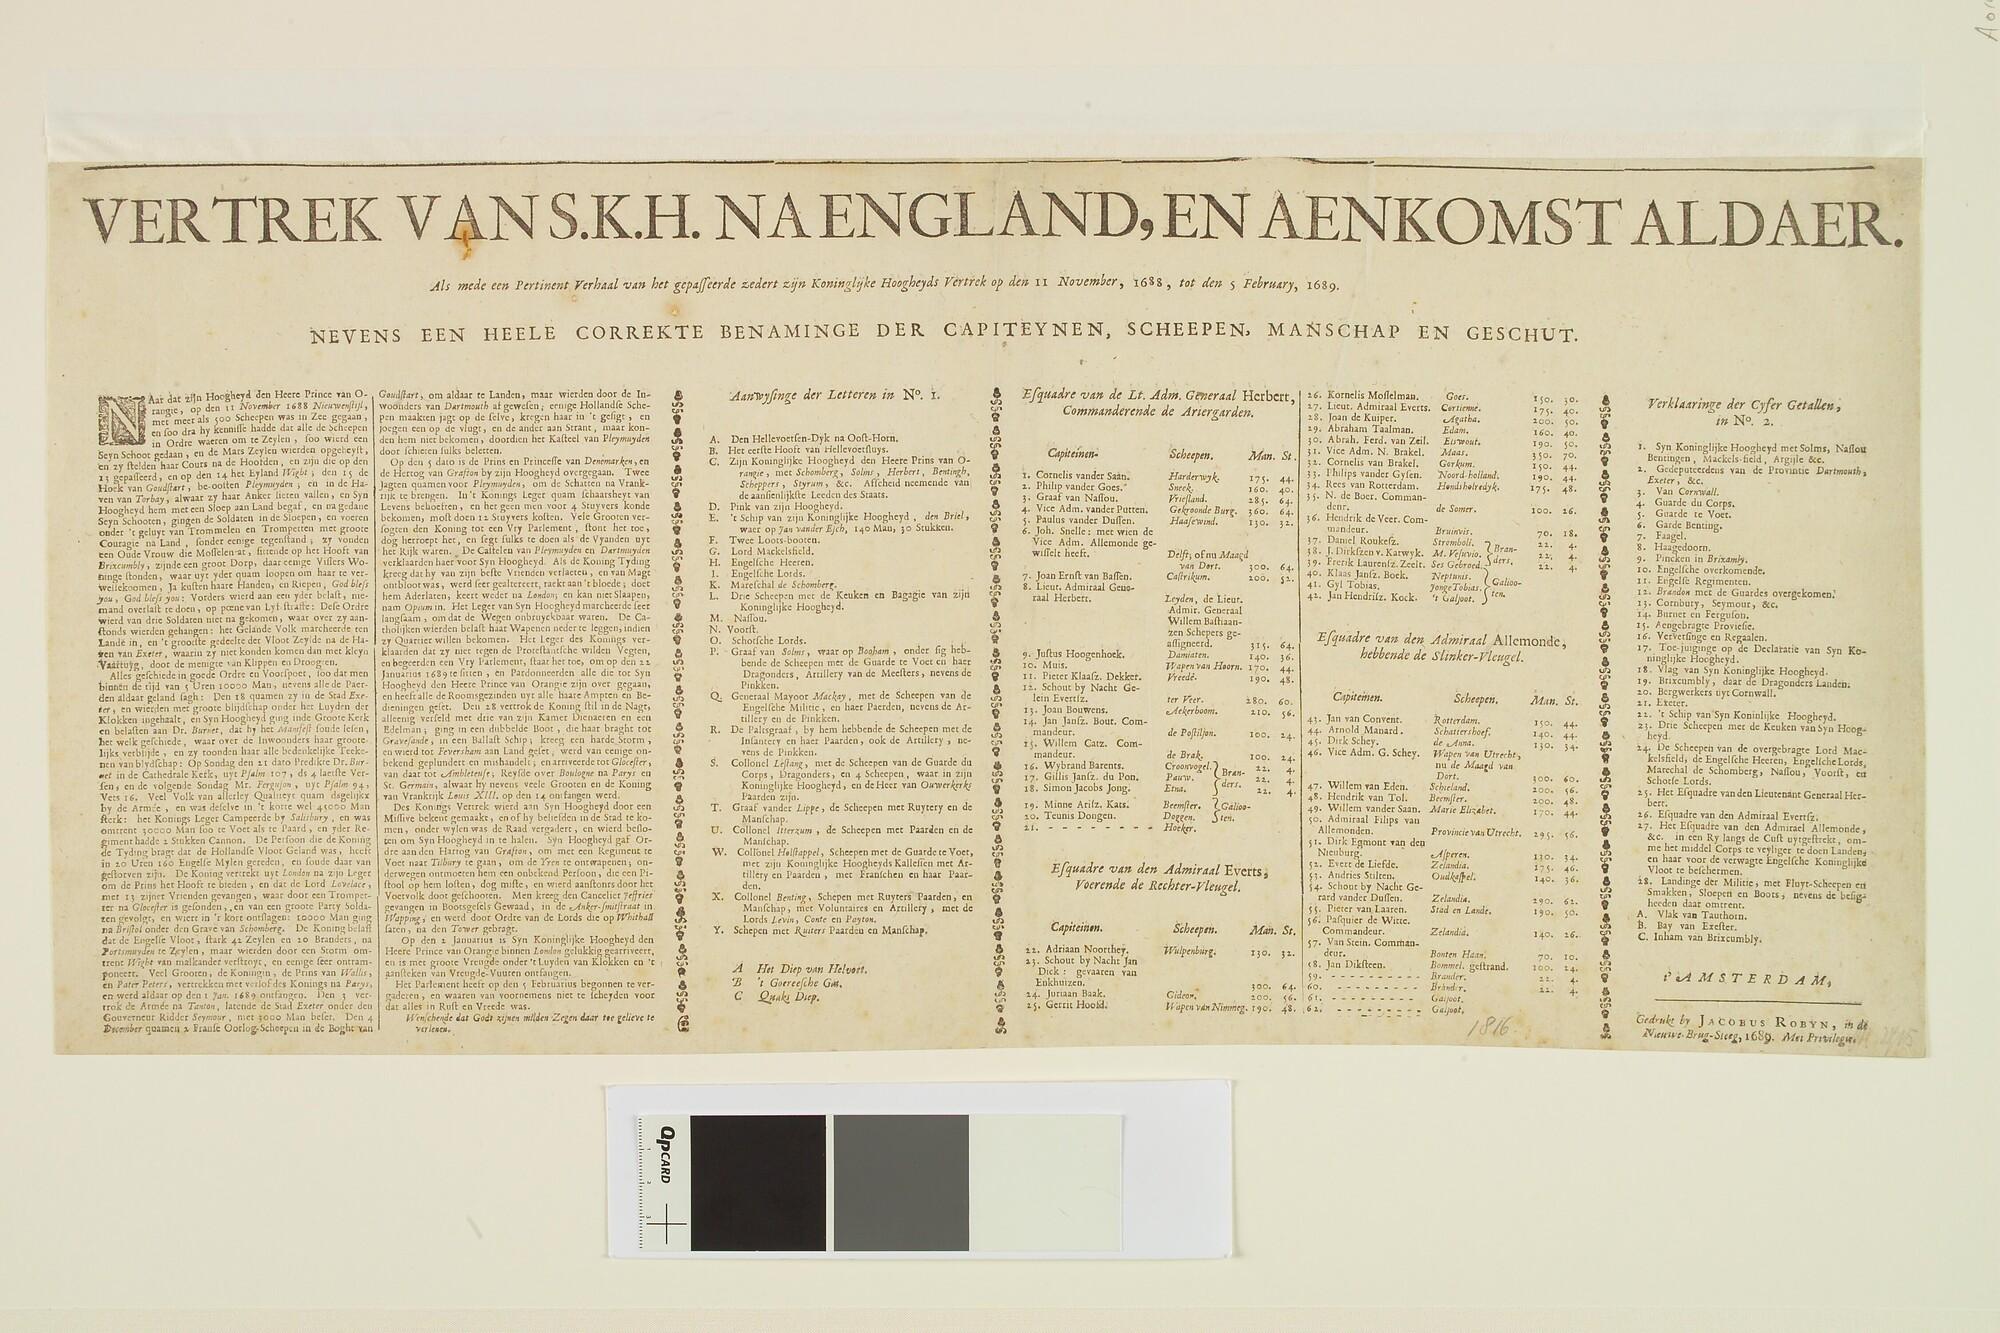 VERTREK VAN S.K.H. NA ENGLAND, EN AENKOMST ALDAER.
Als mede een Pertinent Verhaal van het gepasseerde zedert zijn Koninglijke Hoogheyds Vertrek op den 11 November, 1688, tot den 5 February, 1689.
NEVENS EEN HEELE CORREKTE BENAMINGE DER CAPITEYNEN, SCHEEPEN, MANSCHAP EN GESCHUT.
NAar dat zijn Hoogheyd den Heere Prince van O-
rangie, op den 11 November 1688 Nieuwenstijl,
met meer als 500 Scheepen was in Zee gegaan,
en soo dra hy kennisse hadde dat alle de Scheepen
in Ordre waeren om te Zeylen, soo wierd een
Seyn Schoot gedaan, en de Mars Zeylen wierden opgeheyst,
en zy stelden haar Cours na de Hoofden, en zijn die op den
13 gepasseerd, en op den 14 het Eyland Wight; den 15 de
Hoek van Goudstart, be-oosten Pleymuyden, en in de Ha-
ven van Torbay, alwaar zy haar Anker lieten vallen, en Syn
Hoogheyd hem met een Sloep aan Land begaf, en na gedane
Seyn Schooten, gingen de Soldaten in de Sloepen, en voeren
onder 't geluyt van Trommelen en Trompetten met groote
Couragie na Land, sonder eenige tegenstand; zy vonden
een Oude Vrouw die Mosselen at, sittende op het Hooft van
Brixcumbly, zijnde een groot Dorp, daar eenige Vissers Wo-
ninge stonden, waar uyt yder quam loopen om haar te ver-
wellekoomen, Ja kusten haare Handen, en Riepen, God bless
you, God bless you: Vorders wierd aan een yder belast, nie-
mand overlast te doen, op poene van Lyf-straffe: Dese Ordre
wierd van drie Soldaten niet na gekomen, waar over zy aan-
stonds wierden gehangen: het Gelande Volk marcheerde ten
Lande in, en 't grootste gedeelte der Vloot Zeylde na de Ha-
ven van Exeter, waarin zy niet konden komen dan met kleyn
Vaartuyg, door de menigte van Klippen en Droogten.
Alles geschiede in goede Ordre en Voorspoet, soo dat men
binnen de tijd van 5 Uren 10000 Man, nevens alle de Paer-
den aldaar geland sagh: Den 18 quamen zy in de Stad Exe-
ter, en wierden met groote blijdschap onder het Luyden der
Klokken ingehaalt, en Syn Hoogheyd ging in de Groote Kerk
en belasten aan Dr. Burnet, dat hy het Manifest soude lesen,
het welk geschiede, waar over de Inwoonders haar groote-
lijks verblijde, en zy toonden haar alle bedenkelijke Teeke-
nen van blydschap: Op Sondag den 21 dato Predikte Dr. Bur-
net in de Cathedrale Kerk, uyt Psalm 107, de 4 laetste Ver-
sen, en de volgende Sondag Mr. Ferguson, uyt Psalm 94,
Vers 16. Veel Volk van allerley Qualiteyt quam dagelijkx
by de Armée, en was deselve in 't korte wel 45000 Man
sterk: het Konings Leger Campeerde by Salisbury, en was
omtrent 30000 Man soo te Voet als te Paard, en yder Re-
giment hadde 2 Stukken Cannon. De Persoon die de Koning
de Tyding bragt dat de Hollandse Vloot Geland was, heeft
in 20 Uren 160 Engelse Mylen gereden, en soude daar van
gestorven zijn. De Koning vertrekt uyt London na zijn Leger
om de Prins het Hooft te bieden, en dat de Lord Lovelace,
met 13 zijner Vrienden gevangen, waar door een Trompet-
ter na Glocester is gesonden, en van een groote Party Solda-
ten gevolgt, en wiert in 't kort ontslagen: 10000 Man ging
na Bristol onder den Grave van Schomberg. De Koning belast
dat de Engelse Vloot, stark 42 Zeylen en 20 Branders, na
Portsmuyden te Zeylen, maar wierden door een Storm om-
trent Wight van malkander verstroyt, en eenige seer ontram-
poneert. Veel Grooten, de Koningin, de Prins van Wallis,
en Pater Peters, vertrekken met verlof des Konings na Parys,
en werd aldaar op den 1 Jan. 1689 ontfangen. Den 3 ver-
trok de Armée na Tanton, latende de Stad Exeter onder den
Gouverneur Ridder Seymour, met 3000 Man beset. Den 4
December quamen 2 Franse Oorlog-Scheepen in de Boght van
Goudstart, om aldaar te Landen, maar wierden door de In-
woonders van Dartmouth af gewesen; eenige Hollandse Sche-
pen maakten jagt op de selve, kregen haar in 't gesigt, en
joegen een op de vlugt, en de ander aan Strant, maar kon-
den hem niet bekomen, doordien het Kasteel van Pleymuyden
door schieten sulks beletten.
Op den 5 dato is de Prins en Princesse van Denemarken, en
de Hertog van Grafton by zijn Hoogheyd overgegaan. Twee
Jagten quamen voor Pleymuyden, om de Schatten na Vrank-
rijk te brengen. In 't Konings Leger quam schaarsheyt van
Levens behoeften, en het geen men voor 4 Stuyvers konde
bekomen, most doen 12 Stuyvers kosten. Vele Grooten ver-
sogten den Koning tot een Vry Parlement, stont het toe,
dog herroept het, en segt sulks te doen als de Vyanden uyt
het Rijk waren. De Castelen van Pleymuyden en Dartmuyden
verklaarden haer voor Syn Hoogheyd. Als de Koning Tyding
kreeg dat hy van zijn beste Vrienden verlaeten, en van Magt
ontbloot was, werd seer gealtereert, raekt aan 't bloede; doet
hem Aderlaten, keert weder na London; en kan niet Slaapen,
nam Opium in. Het Leger van Syn Hoogheyd marcheerde seer
langsaam, om dat de Wegen onbruyckbaar waren. De Ca-
tholijken wierden belast haar Wapenen neder te leggen, indien
zy Quartier willen bekomen. Het Leger des Konings ver-
klaarden dat zy niet tegen de Protestantsche wilden Vegten,
en begeerden een Vry Parlement, staat het toe, om op den 22
Januarius 1689 te sitten; en Pardonneerden alle die tot Syn
Hoogheyd den Heere Prince van Orangie zijn over gegaan,
en heeft alle de Roomsgezinden uyt alle haare Ampten en Be-
dieningen geset. Den 28 vertrok de Koning stil in de Nagt,
alleenig verseld met drie van zijn Kamer Dienaeren en een
Edelman; ging in een dubbelde Boot, die haar braght tot
Gravesande, in een Ballast Schip; kreeg een harde Storm,
en wierd tot Feversham aan Land geset; werd van eenige on-
bekend geplundert en mishandelt; en arriveerde tot Glocester,
van daar tot Ambleteuse; Reysde over Boulogne na Parys en
St. Germain, alwaar hy nevens veele Grooten en de Koning
van Vrankrijk Louis XIII. op den 14 ontfangen werd.
Des Konings Vertrek wierd aan Syn Hoogheyd door een
Missive bekent gemaakt, en of hy beliefden in de Stad te ko-
men, onder wylen was de Raad vergadert, en wierd beslo-
ten om Syn Hoogheyd in te halen. Syn Hoogheyd gaf Or-
dre aan den Hartog van Grafton, om met een Regiment te
Voet naar Tilbury te gaan, om de Yren te ontwapenen; on-
derwegen ontmoeten hem een onbekend Persoon, die een Pi-
stool op hem losten, dog miste, en wierd aanstonts door het
Voetvolk door geschooten. Men kreeg den Cancelier Jeffries
gevangen in Bootsgesels Gewaad, in de Anker-smitstraat in
Wapping, en werd door Ordre van de Lords die op Whithall
saten, na den Tower gebragt.
Op den 2 Januarius is Syn Koninglijke Hoogheyd den
Heere Prince van Orangie binnen London gelukkig gearriveert,
en is met groote Vreugde onder 't Luyden van Klokken en 't
aansteken van Vreugde-Vuuren ontfangen.
Het Parlement heeft op den 5 February begonnen te ver-
gaderen, en waaren van voornemens niet te scheyden voor
dat alles in Rust en Vreede was.
Wenschende dat Godt zijnen milden Zegen daar toe gelieve te
verleenen.
Aanwysinge der Letteren in No. 1.
A. Den Hellevoetsen-Dyk na Oost-Horn.
B. Het eerste Hooft van Hellevoetsluys.
C. Zijn Koninglijke Hoogheyd den Heere Prins van O-
rangie, met Schomberg, Solms, Herbert, Bentingh,
Scheppers, Styrum, &c. Afscheid neemende van
de aansienlijkste Leeden des Staats.
D. Pink van zijn Hoogheyd.
E. 't Schip van zijn Koninglijke Hoogheyd, den Briel,
waer op Jan vander Esch, 140 Man, 30 Stukken.
F. Twee Loots-booten.
G. Lord Mackelsfield.
H. Engelsche Heeren.
I. Engelsche Lords.
K. Mareschal de Schomberg.
L. Drie Scheepen met de Keuken en Bagagie van zijn
Koninglijke Hoogheyd.
M. Nassou.
N. Voorst.
O. Schotsche Lords.
P. Graaf van Solms, waar op Booham, onder sig heb-
bende de Scheepen met de Guarde te Voet en haer
Dragonders, Artillery van de Meesters, nevens de
Pinkken.
Q. Generaal Mayoor Mackey, met de Scheepen van de
Engelsche Militie, en haer Paerden, nevens de Ar-
tillery en de Pinkken.
R. De Paltsgraaf, by hem hebbende de Scheepen met de
Infantery en haer Paarden, ook de Artillery, ne-
vens de Pinkken.
S. Collonel Lestang, met de Scheepen van de Guarde du
Corps, Dragonders, en 4 Scheepen, waar in zijn
Koninglijke Hoogheyd, en de Heer van Ouwerkerks
Paarden zijn.
T. Graaf vander Lippe, de Scheepen met Ruytery en de
Manschap.
U. Collonel Itterzum, de Scheepen met Paarden en de
Manschap.
W. Collonel Holstappel, Scheepen met de Guarde te Voet,
met zijn Koninglijke Hoogheyds Kallessen met Ar-
tillery en Paarden, met Franschen en haar Paar-
den.
X. Collonel Benting, Schepen met Ruyters Paarden, en
Manschap, met Voluntaires en Artillery, met de
Lords Levin, Conte en Payton.
Y. Schepen met Ruiters Paarden en Manschap.
A Het Diep van Helvoet.
B 't Goereesche Gat.
C Quaks Diep.
Esquadre van de Lt. Adm. Generaal Herbert,
Commanderende de Ariergarden.
Capiteinen. Scheepen. Man. St.
1. Cornelis vander Saan. Harderwyk. 175. 44.
2. Philip vander Goes. Sneek. 160. 40.
3. Graaf van Nassou. Vriesland. 285. 64.
4. Vice Adm. vander Putten. Gekroonde Burg. 360. 64.
5. Paulus vander Dussen. Haasewind. 130. 32.
6. Joh. Snelle: met wien de
Vice Adm. Allemonde ge-
wisselt heeft. Delft; of nu Maagd
van Dort. 300. 64.
7. Joan Ernst van Bassen. Castrikum. 200. 52.
8. Lieut. Admiraal Gene-
raal Herbert. Leyden, de Lieut.
Admir. Generaal
Willem Bastiaan-
zen Schepers ge-
assigneerd. 315. 64.
9. Justus Hoogenhoek. Damiaten. 140. 36.
10. Muis. Wapen van Hoorn. 170. 44.
11. Pieter Klaasz. Dekker. Vreede. 190. 48.
12. Schout by Nacht Ge-
lein Evertsz. ter Veer. 280. 60.
13. Joan Bouwens. Aekerboom. 210. 56.
14. Jan Jansz. Bout. Com-
mandeur. de Postiljon. 100. 24.
15. Willem Catz. Com-
mandeur. de Brak. 100. 24.
16. Wybrand Barents. Croonvogel. Bran- 22. 4.
17. Gillis Jansz. du Pon. Pauw. ders. 22. 4.
18. Simon Jacobs Jong. Etna. 22. 4.
19. Minne Arisz. Kats. Beemster. Galioo-
20. Teunis Dongen. Doggen. ten.
21. - - - - - - - - - Hoeker.
Esquadre van den Admiraal Everts,
Voerende de Rechter-Vleugel.
Capiteinen. Scheepen. Man. St.
22. Adriaan Noorthey. Wulpenburg. 130. 32.
23. Schout by Nacht Jan
Dick: gevaaren van
Enkhuizen. 300. 64.
24. Juriaan Baak. Gideon. 200. 56.
25. Gerrit Hoofd. Wapen van Nimmeg. 190. 48.
26. Kornelis Mosselman. Goes. 150. 30.
27. Lieut. Admiraal Everts. Cortienne. 175. 40.
28. Joan de Kuiper. Agatha. 200. 50.
29. Abraham Taalman. Edam. 160. 40.
30. Abrah. Ferd. van Zeil. Eiswout. 190. 50.
31. Vice Adm. N. Brakel. Maas. 350. 70.
32. Cornelis van Brakel. Gorkum. 150. 44.
33. Philips vander Gysen. Noord-holland. 190. 44.
34. Rees van Rotterdam. Hondsholredyk. 175. 48.
35. N. de Boer. Comman-
deur. de Somer. 100. 26.
36. Hendrik de Veer. Com-
mandeur. Bruinvis. 70. 18.
37. Daniel Roukesz. Stromboli. Bran- 22. 4.
38. J. Dirkszen v. Katwyk. M. Vesuvio. ders. 22. 4.
39. Frerik Laurensz. Zeelt. Ses Gebroed. 22. 4.
40. Klaas Jansz. Boek. Neptunis. Galioo-
41. Gyl Tobias. Jonge Tobias. ten.
42. Jan Hendrisz. Kock. 't Galjoot.
Esquadre van den Admiraal Allemonde,
hebbende de Slinker-Vleugel.
Capiteinen. Scheepen. Man. St.
43. Jan van Convent. Rotterdam. 150. 44.
44. Arnold Manard. Schattershoef. 140. 44.
45. Dirk Schey. de Anna. 130. 34.
46. Vice Adm. G. Schey. Wapen van Utrecht,
nu de Maagd van
Dort. 300. 60.
47. Willem van Eden. Schieland. 200. 56.
48. Hendrik van Tol. Beemster. 200. 48.
49. Willem vander Saan. Marie Elizabet. 170. 44.
50. Admiraal Filips van
Allemonden. Provincie van Utrecht. 295. 56.
51. Dirk Egmont van den
Nieuburg. Asperen. 130. 34.
52. Evert de Liefde. Zelandia. 175. 46.
53. Andries Stilten. Oudkassel. 140. 36.
54. Schout by Nacht Ge-
rard vander Dussen. Zelandia. 290. 62.
55. Pieter van Laaren. Stad en Lande. 190. 50.
56. Pasquier de Witte.
Commandeur. Zelandia. 140. 26.
57. Van Stein. Comman-
deur. Bonten Haan. 70. 10.
58. Jan Diksteen. Bommel. gestrand. 100. 24.
59. - - - - - - - - - Brander. 22. 4.
60. - - - - - - - - - Brander. 22. 4.
61. - - - - - - - - - Galjoot.
62. - - - - - - - - - Galjoot.
Verklaaringe der Cyfer Getallen,
in No. 2.
1. Syn Koninglijke Hoogheyd met Solms, Nassou
Bentingen, Mackels-field, Argijle &c.
2. Gedeputeerdens van de Provintie Dartmouth,
Exeter, &c.
3. Van Cornwall.
4. Guarde du Corps.
5. Guarde te Voet.
6. Garde Benting.
7. Faagel.
8. Haagedoorn.
9. Pincken in Brixamly.
10. Engelsche overkomende.
11. Engelse Regimenten.
12. Brandon met de Guardes overgekomen.
13. Cornbury, Seymour, &c.
14. Burnet en Ferguson.
15. Aengebragte Proviese.
16. Verversinge en Regaalen.
17. Toe-juiginge op de Declaratie van Syn Ko-
ninglijke Hoogheyd.
18. Vlag van Syn Koninglijke Hoogheyd.
19. Brixcumbly, daar de Dragonders Landen.
20. Bergwerkers uyt Cornwall.
21. Exeter.
22. 't Schip van Syn Koninlijke Hoogheyd.
23. Drie Scheepen met de Keuken van Syn Hoog-
heyd.
24. De Scheepen van de overgebragte Lord Mac-
kelsfield, de Engelsche Heeren, Engelsche Lords,
Marechal de Schomberg, Nassou, Voorst, en
Schotse Lords.
25. Het Esquadre van den Lieutenant Generaal Her-
bert.
26. Esquadre van den Admiraal Evertsz.
27. Het Esquadre van den Admirael Allemonde,
&c. in een Ry langs de Cust uytgestrekt, om-
me het middel Corps te veyliger te doen Landen,
en haar voor de verwagte Engelsche Koninglijke
Vloot te beschermen.
28. Landinge der Militie, met Fluyt-Scheepen en
Smakken, Sloepen en Boots, nevens de besig-
heeden daar omtrent.
A. Vlak van Tauthorn.
B. Bay van Exester.
C. Inham van Brixcumbly.
t' AMSTERDAM,
Gedrukt by JACOBUS ROBYN, in de
Nieuwe-Brug-Steeg, 1689. Met Privilegie.
1816
QPCARD